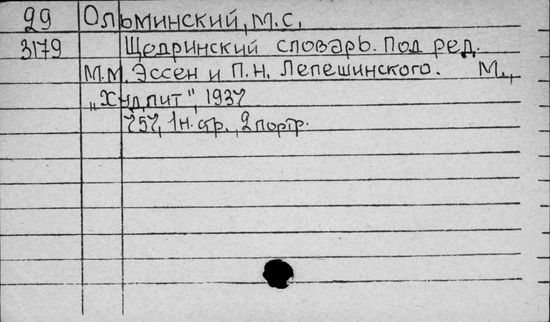 29 Ольминский, М.С.
3179 Щедринский словарь. Под ред.
М.М. Эссен и П.Н. Лепешинского. М.,
„Худлит", 1937
757, 1 н. стр., 2 портр.